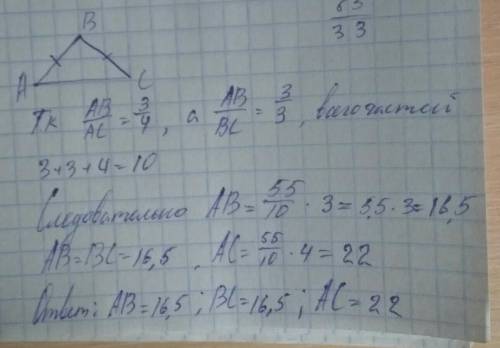 B
A C
Тк AB/AC = 3/4, а AB/BC = 3/3, всего частей
3+3+4=10
Следовательно AB = 55/10 · 3 = 5,5 · 3 = 16,5
AB=BC=16,5, AC = 55/10 · 4 = 22
Ответ: AB=16,5; BC=16,5; AC=22